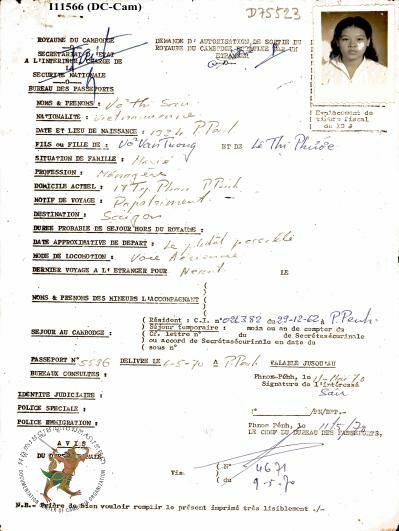 111566 (DC-Cam)
D75523
ROYAUME DU CAMBODGE
SECRETARIAT D'ETAT
A L'INTERIEUR CHARGE DE
LA
SECURITE NATIONALE
BUREAU DES PASSEPORTS
DEMANDE D'AUTORISATION DE SORTIE DU
ROYAUME DU CAMBODGE FORMULEE PAR UN
ETRANGER
Emplacement de
timbre fiscal
du 10 $
NOMS & PRENOMS : Võ Thi Sáu
NATIONALITE : Vietnamienne
DATE ET LIEU DE NAISSANCE : 1934 P.Penh
FILS ou FILLE DE : Võ Van Tuong ET DE Lê Thi
SITUATION DE FAMILLE : Marié
PROFESSION : Ménagère
DOMICILE ACTUEL : P.Penh
MOTIF DE VOYAGE : Rapatriement
DESTINATION : Saigon
DUREE PROBABLE DE SEJOUR HORS DU ROYAUME :
DATE APPROXIMATIVE DE DEPART : Le plutôt possible
MODE DE LOCOMOTION : Voie Aérienne
DERNIER VOYAGE A L'ETRANGER POUR Néant LE
NOMS & PRENOMS DES MINEURS L'ACCOMPAGNANT
SEJOUR AU CAMBODGE :
Résident : C.I. n° 021382 du 29-12-62 à P.Penh
Séjour temporaire : mois ou an de compter du
Cf. lettre n° de
ou accord de en date du
sous n°
PASSEPORT N° 5536 DELIVRE LE 6-5-70 A P.Penh VALABLE JUSQU'AU
BUREAUX CONSULTES :
Phnom-Pénh, 11-Mai 70
Signature de l'intéressé
Sáu
IDENTITE JUDICIAIRE :
POLICE SPECIALE :
POLICE EMIGRATION :
N° /PN/BPP.-
Phnom Pénh, 11/5/70
LE CHEF DU BUREAU DES PASSEPORTS,
AVIS
Visa
N° 4671
9-5-70
N.B.- Prière de bien vouloir remplir le présent imprimé très lisiblement ./-